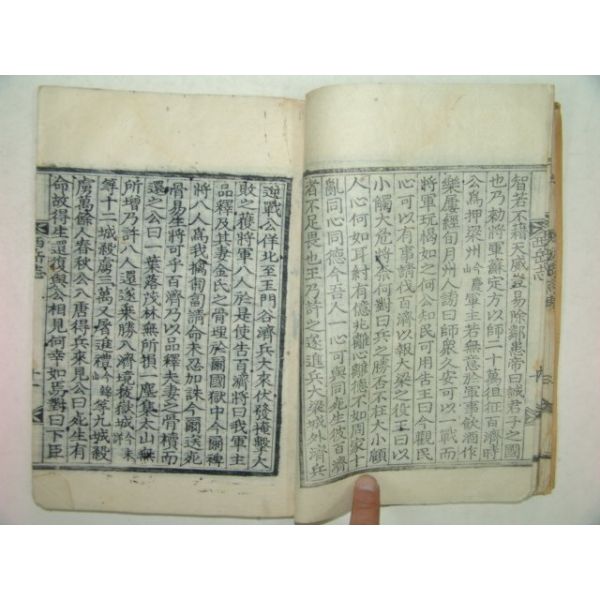 智若不籍天威豈易除鄰患帝曰誠君子之國
也乃勅將軍蘇定方以師二十萬徂征百濟時
公爲押梁州慶山軍主若無意於軍事歡酒作
樂屢經旬月州人謗曰師衆久安可以一戰而
將軍玩愒如之何公知民可用告王曰今觀民
心可以有事請伐百濟以報大梁之役王曰以
小觸大危將奈何對曰兵之勝否不在大小顧
人心何如耳紂有億兆離心離德不如周家十
亂同心同德今吾人一心可與同死生彼百濟
者不足畏也王乃許之遂進兵大梁城外濟兵
西岳志
迎戰公佯北至玉門谷濟兵大來伏發掩擊大
敗之獲將軍八人於是使告百濟將曰我軍主
品釋及其妻金氏之骨埋於爾國獄中今爾裨
將八人爲我擒匍匐請命未忍加誅今爾送死
骨易生將可乎百濟乃以品釋夫妻之骨櫝而
還之公曰一葉落茂林無所損一塵集太山無
所增乃許八人還遂乘勝入濟境拔嶽城今未詳
等十二城殺虜三萬又屠進禮等九城殺
虜萬餘人春秋公入唐得兵來見公曰死生有
命故得生還復與公相見何幸如焉對曰下臣
西岳志